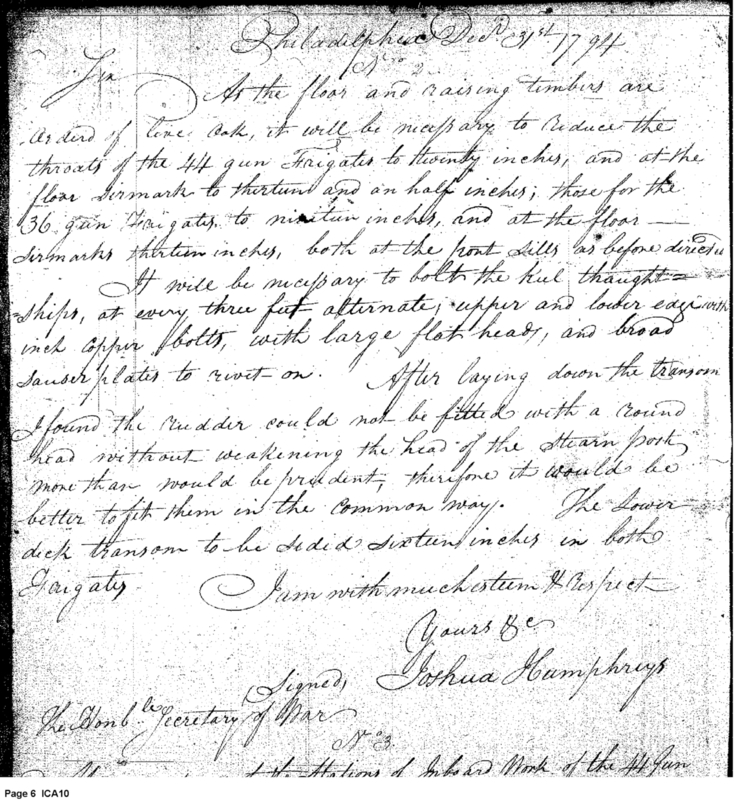 Philadelphia Decr 31st 1794
No 2
Sir
As the floor and raising timbers are
ordered of live Oak, it will be necessary to reduce the
throats of the 44 gun Frigates to twenty inches, and at the
floor sirmark to thirteen and an half inches; those for the
36 gun Frigates to nineteen inches, and at the floor
sirmarks thirteen inches, both at the port sills as before directed
It will be necessary to bolt the Keel thaught=
=ships, at every three feet alternate, upper and lower edge with
inch Copper bolts, with large flat heads, and broad
sauser plates to rivit on. After laying down the transom
I found the rudder could not be fitted with a round
head without weakening the head of the Stearn post
more than would be prudent, therefore it would be
better to fit them in the common way. The Lower
deck transom to be sided sixteen inches in both
Frigates.
I am with much esteem & respect
Yours &c
(Signed) Joshua Humphreys
The Honble Secretary of War
No 3
at the Stations of Inboard Work of the 44 Gun
Page 6 ICA10